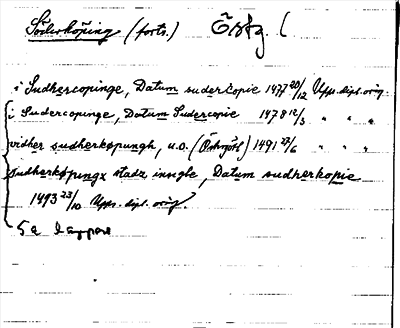 Söderköping (forts.) Östg. (
i Sudhercopinge, Datum sudercopie 1477 20/12 Upps. dipl. orig.
i Sudercopinge, Datum Sudercopie 1478 12/3 " " "
vidher sudherkøpungh, u.o. (Östergötl) 1491 27/6 " " "
Sudherkøpungx stadz insegle, Datum sudherkopie
1493 23/10 Upps. dipl. orig.
5 a lappar